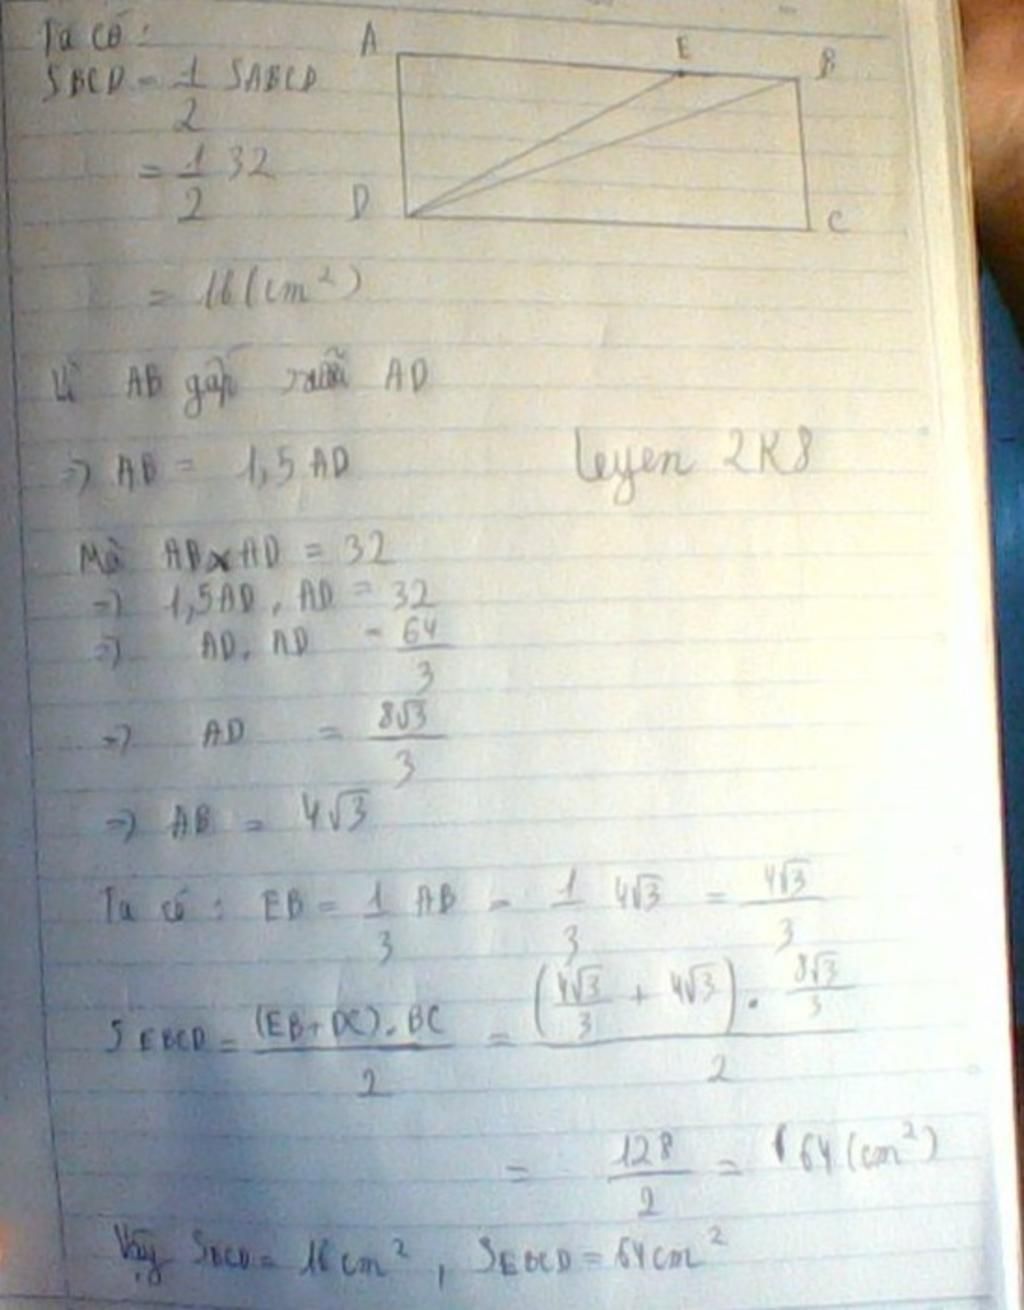 Ta có:
A E B
SBCD = 1/2 SABCD
= 1/2 32
D C
= 16 (cm²)
Vì AB gấp rưỡi AD
=> AB = 1,5 AD
leyen 2K8
Mà AB x AD = 32
=> 1,5AD . AD = 32
=> AD . AD = 64/3
=> AD = 8√3/3
=> AB = 4√3
Ta có: EB = 1/3 AB = 1/3 4√3 = 4√3/3
SEBCD = (EB + DC) . BC / 2 = (4√3/3 + 4√3) . 8√3/3 / 2
= 128/2 = 64 (cm²)
Vậy SBCD = 16 cm², SEBCD = 64 cm²